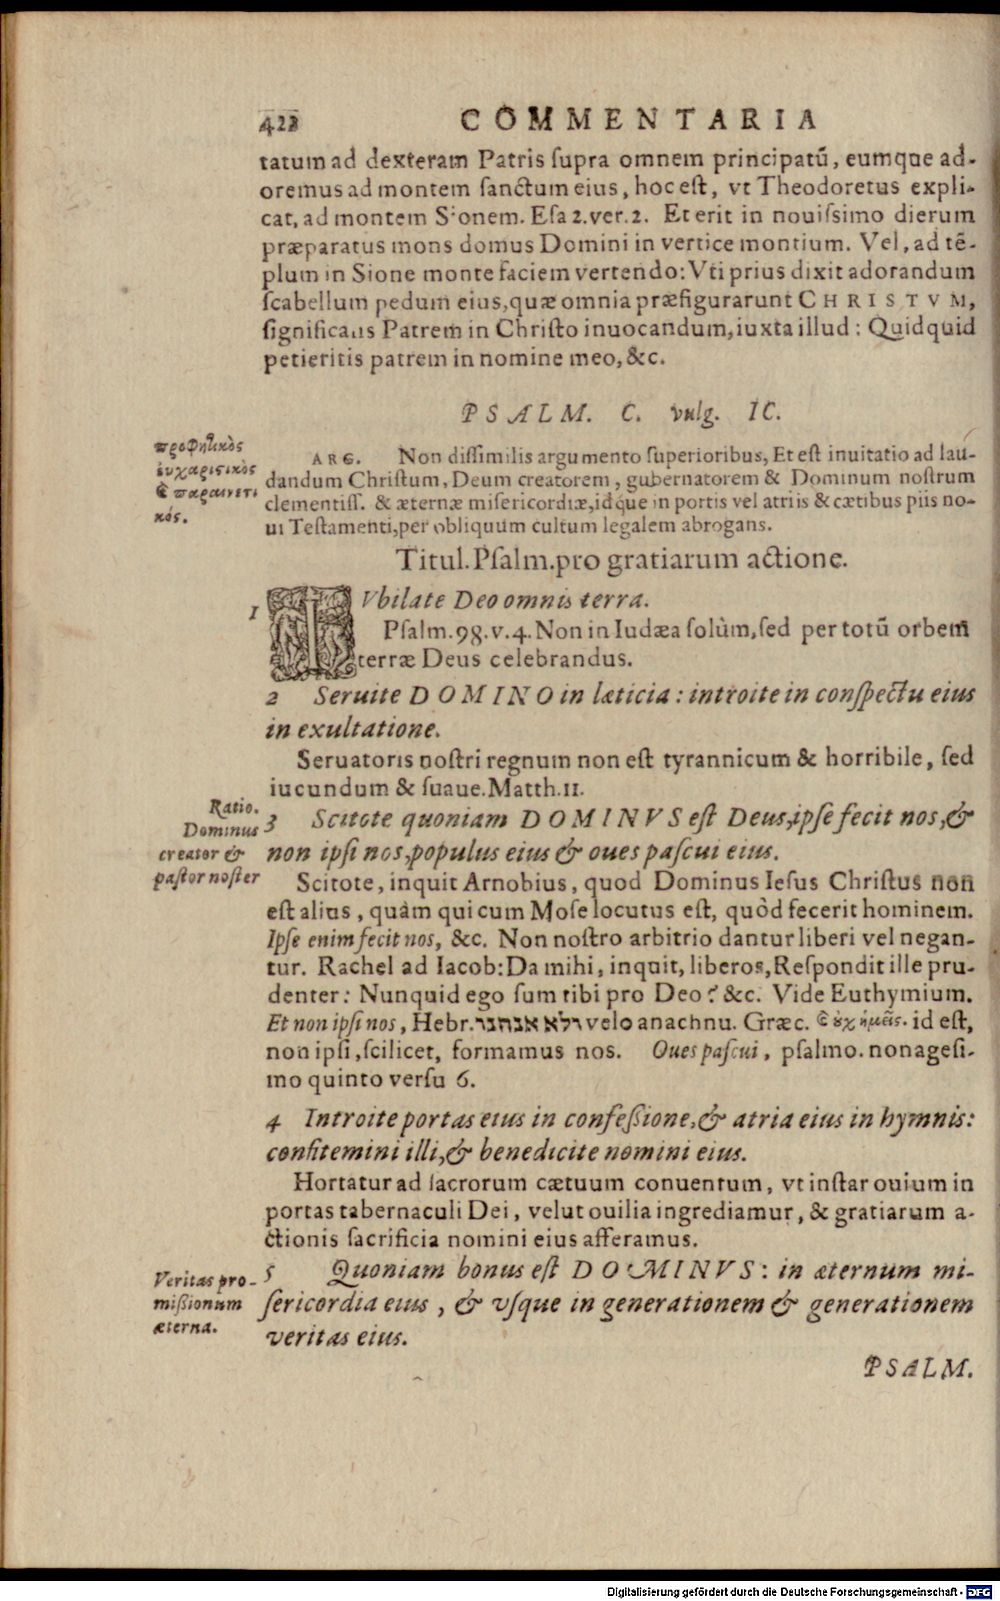 422 COMMENTARIA
tatum ad dexteram Patris ſupra omnem principatũ, eumque ad-
oremus ad montem ſanctum eius, hoc eſt, vt Theodoretus expli-
cat, ad montem Sionem. Eſa 2. ver. 2. Et erit in nouiſsimo dierum
præparatus mons domus Domini in vertice montium. Vel, ad tẽ-
plum in Sione monte faciem vertendo: Vti prius dixit adorandum
ſcabellum pedum eius, quæ omnia præfigurarunt CHRISTVM,
ſignificans Patrem in Chriſto inuocandum, iuxta illud: Quidquid
petieritis patrem in nomine meo, &c.
PSALM. C. vulg. IC.
προφητικὸς
ἐυχαριςικὸς
ϗ παραινετι
κός.
ARG. Non diſſimilis argumento ſuperioribus, Et eſt inuitatio ad lau-
dandum Chriſtum, Deum creatorem, gubernatorem & Dominum noſtrum
clementiſſ. & æternæ miſericordiæ, idque in portis vel atriis & cætibus piis no-
ui Teſtamenti, per obliquum cultum legalem abrogans.
Titul. Pſalm. pro gratiarum actione.
1 IVbilate Deo omnis terra.
Pſalm. 98. v. 4. Non in Iudæa ſolùm, ſed per totũ orbem
terræ Deus celebrandus.
2 Seruite DOMINO in læticia: introite in conſpectu eius
in exultatione.
Seruatoris noſtri regnum non eſt tyrannicum & horribile, ſed
iucundum & ſuaue. Matth. 11.
Ratio.
Dominus
creator &
paſtor noſter
3 Scitote quoniam DOMINVS eſt Deus, ipſe fecit nos, &
non ipſi nos, populus eius & oues paſcui eius.
Scitote, inquit Arnobius, quod Dominus Ieſus Chriſtus non
eſt alius, quàm qui cum Moſe locutus eſt, quòd fecerit hominem.
Ipſe enim fecit nos, &c. Non noſtro arbitrio dantur liberi vel negan-
tur. Rachel ad Iacob: Da mihi, inquit, liberos, Reſpondit ille pru-
denter: Nunquid ego ſum tibi pro Deo? &c. Vide Euthymium.
Et non ipſi nos, Hebr. ולא אנחנו velo anachnu. Græc. ϗ ὀυχ ἡμεῖς. id eſt,
non ipſi, ſcilicet, formamus nos. Oues paſcui, pſalmo. nonageſi-
mo quinto verſu 6.
4 Introite portas eius in confeſsione, & atria eius in hymnis:
confitemini illi, & benedicite nomini eius.
Hortatur ad ſacrorum cætuum conuentum, vt inſtar ouium in
portas tabernaculi Dei, velut ouilia ingrediamur, & gratiarum a-
ctionis ſacrificia nomini eius afferamus.
Veritas pro-
miſsionum
æterna.
5 Quoniam bonus eſt DOMINVS: in æternum mi-
ſericordia eius, & vſque in generationem & generationem
veritas eius.
PSALM.
Digitalisierung gefördert durch die Deutsche Forschungsgemeinschaft - DFG